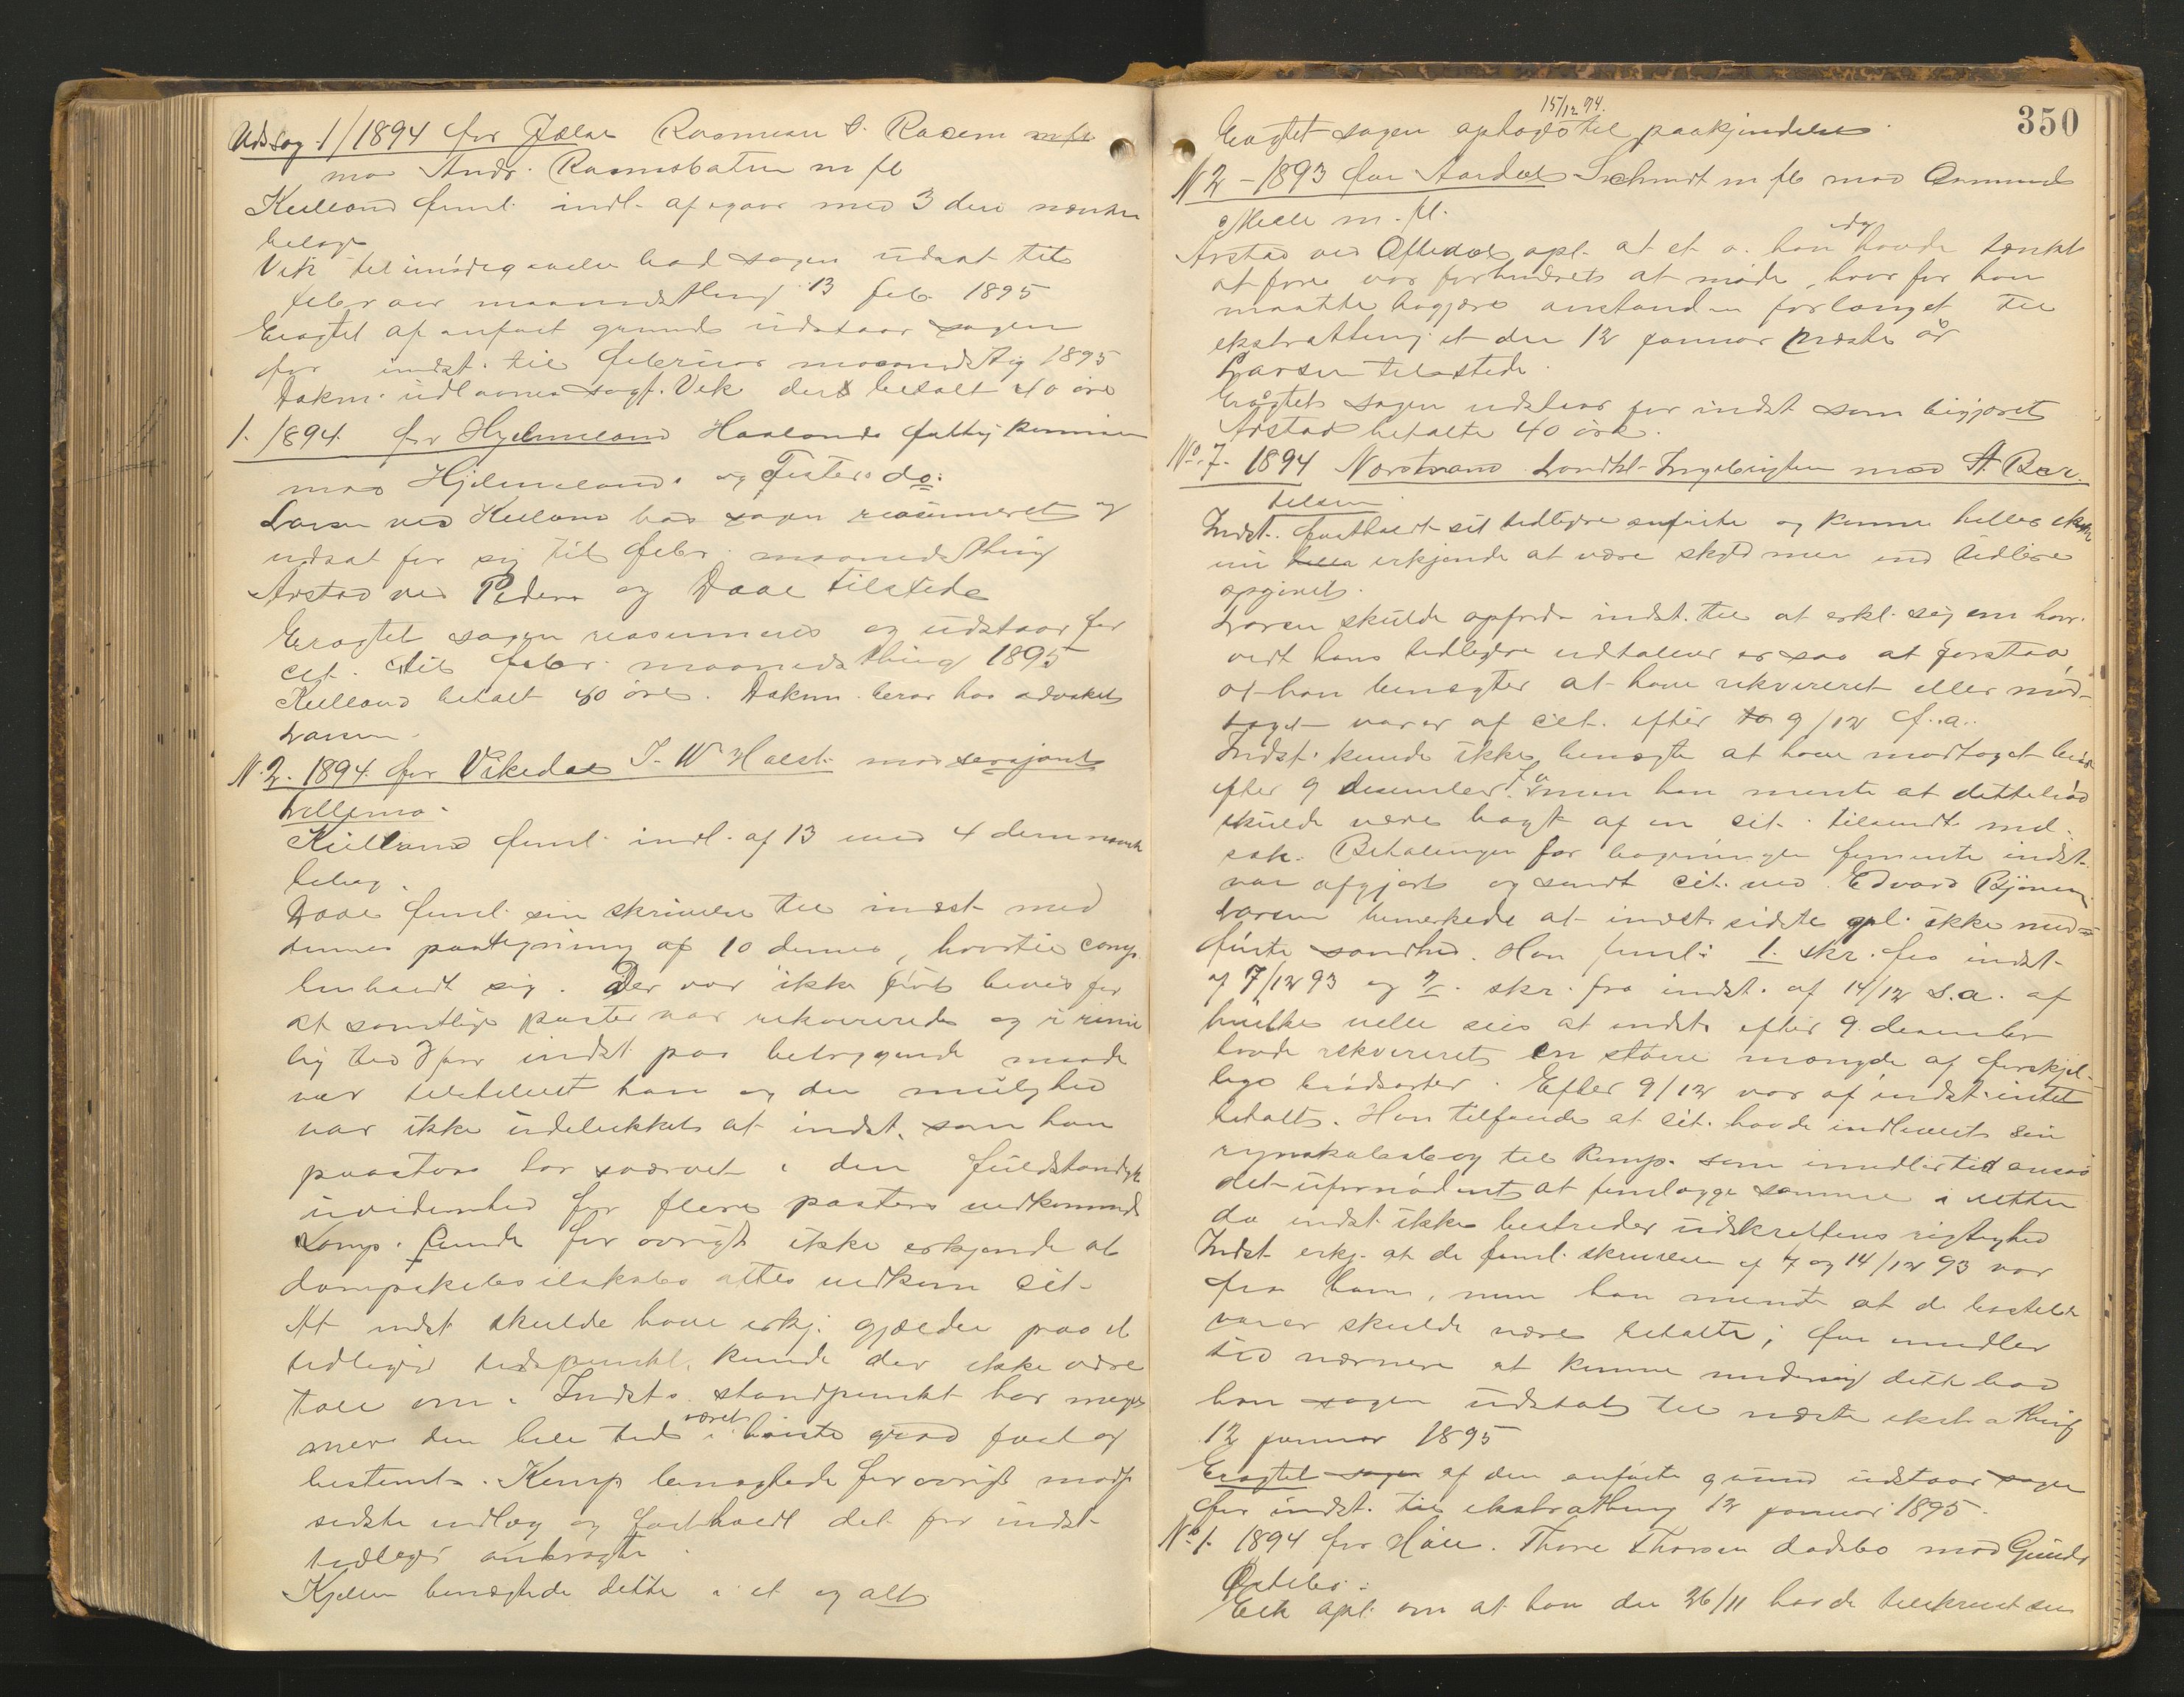 Uds sag 1/1894 for Jælse Rasmus S. Racem m fl
mod Andr. Rasmusbatun m fl
Kielland freml. indl. af igaar med 3 deri nævnte
belage
Vik til imødegaaelse bad sagen udsat til
februar maanedsthing 13 feb. 1895
Eragtet af anført grund udstaar sagen
for indst. til februar maanedsthg 1895
Dokm. udlaanes sagf. Vik der betalt 40 øre
1. /1894 for Hjelmeland Haalands fattigkommision
mod Hjelmelands og Fisters do.
Larsen ved Kielland bad sagen reasumeret og
udsat for sig til febr. maanedsthing
Arstad ved Pedersen og Daae tilstede
Eragtet sagen reasumeres og udstaar for
cit. til febr. maanedsthing 1895
Kielland betalt 40 øre. Dokm. beror hos advokat
Larsen.
N. 2. 1894 for Vikedal J. W. Holst mod sersjant
Lillemo.
Kielland freml. indl. af 13 med 4 dem nævnte
belag.
Daae freml. sin skrivelse til indst med
dennes paategning af 10 dennes, hvortil comp.
henholdt sig. Der var ikke ført bevis for
at samtlige poster var rekvirerede og i rime
lig tid for indst paa betryggende maade
var tilstillet ham og den mulighed
var ikke udelukket at indst. som han
paastod har svævet i den fuldstændigste
uvidenhed for flere posters vedkommende
Comp. kunde for øvrigt ikke erkjende at
dampskibsselskabs attes vedkom cit.
At indst skulde have erkj. gjælden paa et
tidligere tidspunkt, kunde der ikke være
tale om. Indsts. standpunkt har meget
mere den hele tid været i høieste grad fast og
bestemt. Komp benægtede for øvrigt modp.
sidste indlæg og fastholdt det for indst.
tidligere anbragte.
Kjelland benægtede dette i et og alt
350
15/12 94.
Eragtet sagen optages til paakjendelse
N 2 - 1893 for Aardal Schmidt m fl mod Osmund
Melle m. fl.
Arstad ved Oftedal opl. at et v. han idag havde tænkt
at føre var forhindret at møde, hvorfor han
maatte begjære anstanden forlænget til
ekstrathing et den 12 januar næste år
Larsen tilstede.
Eragtet sagen udstaar for indst som begjæret
Arstad betalte 40 øre.
No. 7. 1894 Norstrand Landhl. Ingebrigtsen mod A. Ber
telsen
Indst. fastholdt sit tidligere anførte og kunne heller ikke
nu erkjende at være skyld mer end tidligere
opgivet.
Larsen skulde opfordre indst. til at erkl. sig om hor
vidt hans tidligere udtalelser er saa at forstaa,
at han benægter at have rekvireret eller mod-
taget varer af cit. efter 9/12 f. a.
Indst. kunde ikke benægte at have modtaget brød
efter 9 desember f. a men han mente at dette brød
skulde være bagt af en cit. tilsendt mel
sæk. Betalingen for bagningen formente indst.
var afgjort og sendt cit. ved Edvard Bjønnes
Larsen bemerkede at indsts. sidste opl. ikke med-
førte sandhed. Han freml: 1. skr. fra indst.
af 7/12 93 og 2. skr. fra indst. af 14/12 s.a. af
hvilke ville sees at indst. efter 9. desember
havde rekvireret en større mængde af forskjel-
lige brødsorter. Efter 9/12 var af indst. intet
betalt. Han tilføiede at cit. havde indleveret sin
regnskabsbog til komp. som imidlertid ansaa
det ufornødent at fremlægge samme i retten
da indst ikke bestrider udskriftens rigtighed
Indst erkj. at de freml. skrivelser af 7 og 14/12 93 var
fra ham, men han mente at de bestilte
varer skulde være betalte; for imidler
tid nærmere at kunne undersøge dette bad
han sagen udstaa til næste ekstrathing
12 januar 1895
Eragtet sagen af den anførte grund udstaar sagen
for indst. til ekstrathing 12 januar 1895.
No. 1. 1894 for Haa. Thore Thorsen dødsbo mod Gunder
Ødebø:
Eek opl. om at han den 26/11 havde tilskrevet sin